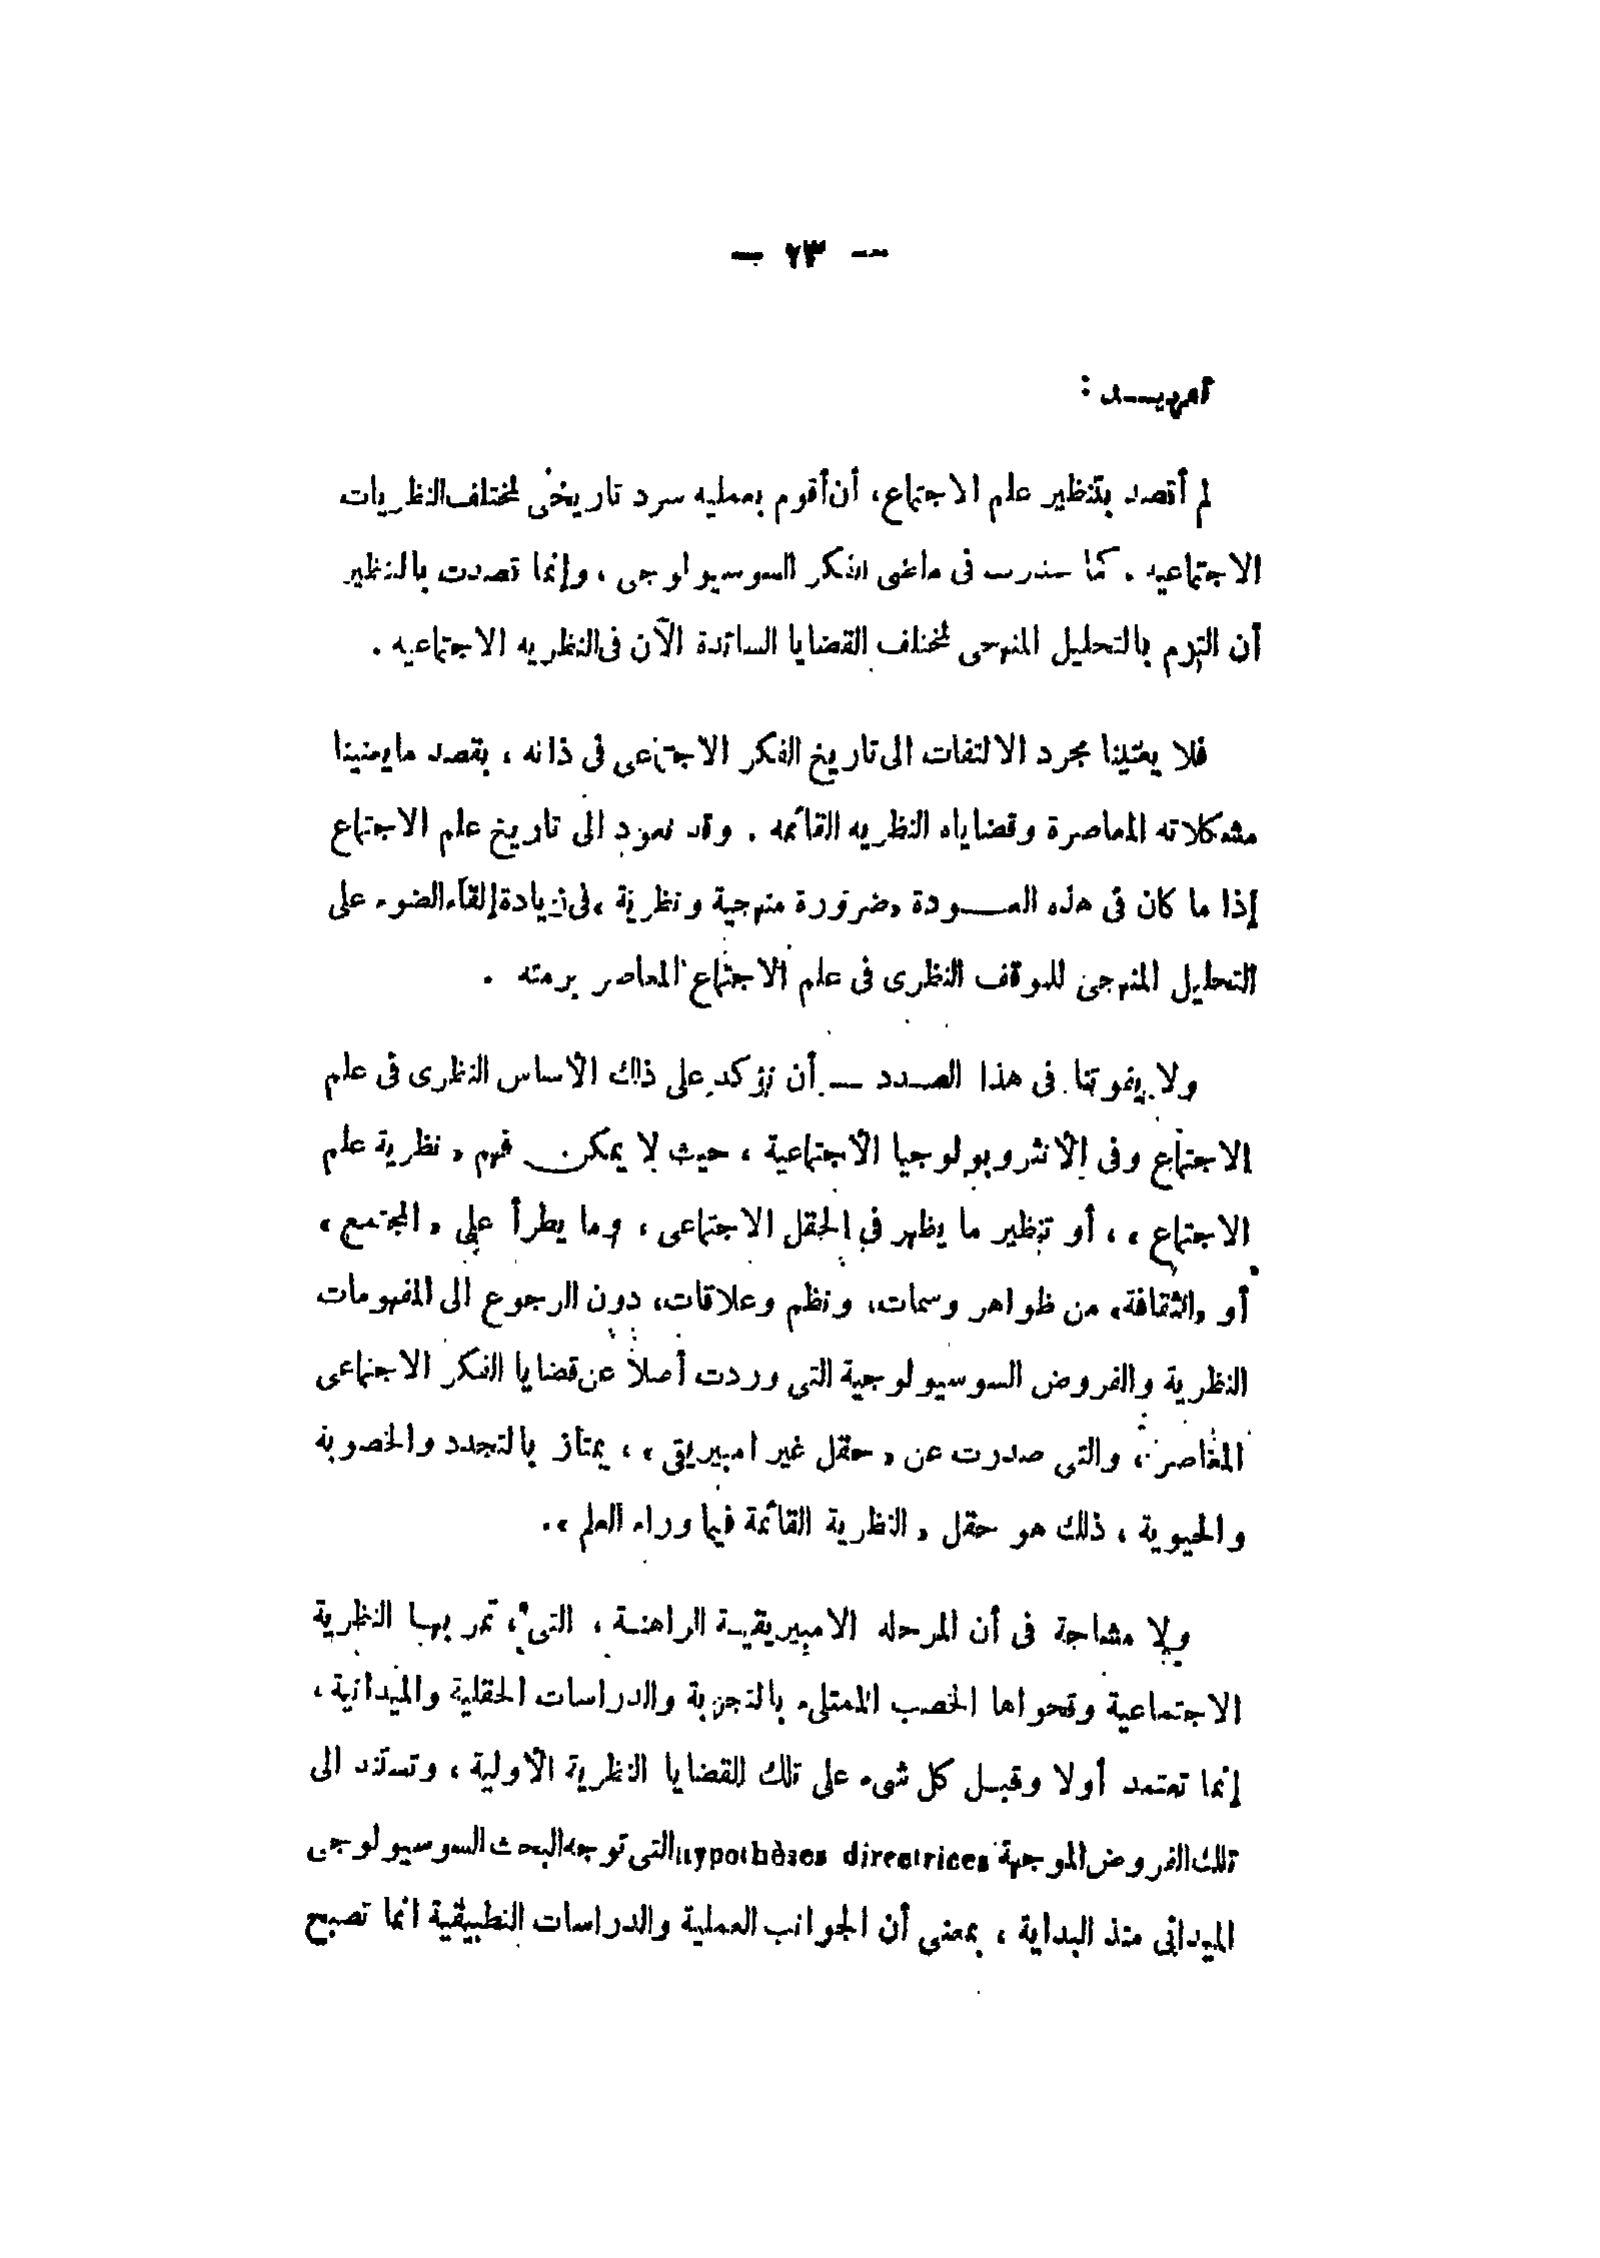 — ٢٣ —
تمهيـــد :
لم أقصد بتنظير علم الاجتماع، أن أقوم بعمليه سرد تاريخى لمختلف النظريات
الاجتماعيه . كما سدرت فى ماضى الفكر السوسيولوجى ، وإنما قصدت بالتنظير
أن التزم بالتحليل المنهجى لمختلف القضايا السائدة الآن فى النظريه الاجتماعيه .
فلا يعنينا مجرد الالتفات الى تاريخ الفكر الاجتماعى فى ذاته ، بقصد ما يعنينا
مشكلاته المعاصرة وقضاياه النظريه القائمه . وقد نعود الى تاريخ علم الاجتماع
إذا ما كان فى هذه العـــودة «ضرورة منهجية ونظرية» فى زيادة إلقاء الضوء على
التحليل المنهجى للموقف النظرى فى علم الاجتماع المعاصر برمته .
ولا يفوتنا فى هذا الصدد — أن نؤكد على ذلك الأساس النظرى فى علم
الاجتماع وفى الأنثروبولوجيا الاجتماعية ، حيث لا يمكن فهم « نظرية علم
الاجتماع » ، أو تنظير ما يظهر فى الحقل الاجتماعى ، وما يطرأ على « المجتمع »
أو «الثقافة» من ظواهر وسمات، ونظم وعلاقات، دون الرجوع الى المفهومات
النظرية والفروض السوسيولوجية التى وردت أصلا عن قضايا الفكر الاجتماعى
المعاصر ، والتى صدرت عن « حقل غير امبيريقى » ، يمتاز بالتجدد والخصوبة
والحيوية ، ذلك هو حقل « النظرية القائمة فيما وراء العلم » .
ولا مشاحة فى أن المرحله الامبيريقيـة الراهنـة ، التى ، تمر بهـا النظرية
الاجتماعية وفحواها الخصب الممتلىء بالتجربة والدراسات الحقلية والميدانية ،
إنما تعتمد أولا وقبـل كل شىء على تلك القضايا النظرية الأولية ، وتستند الى
تلك الفروض الموجهة hypothèses directrices التى توجه البحث السوسيولوجى
الميدانى منذ البداية ، بمعنى أن الجوانب العملية والدراسات التطبيقية انما تصبح